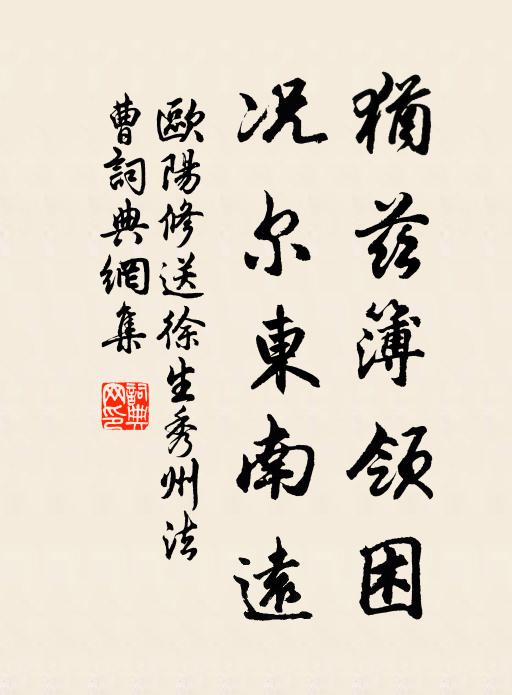 猶茲簿領困
况尔東南遠
歐陽修送徐生秀州法
曹詞典網集
詞典网印